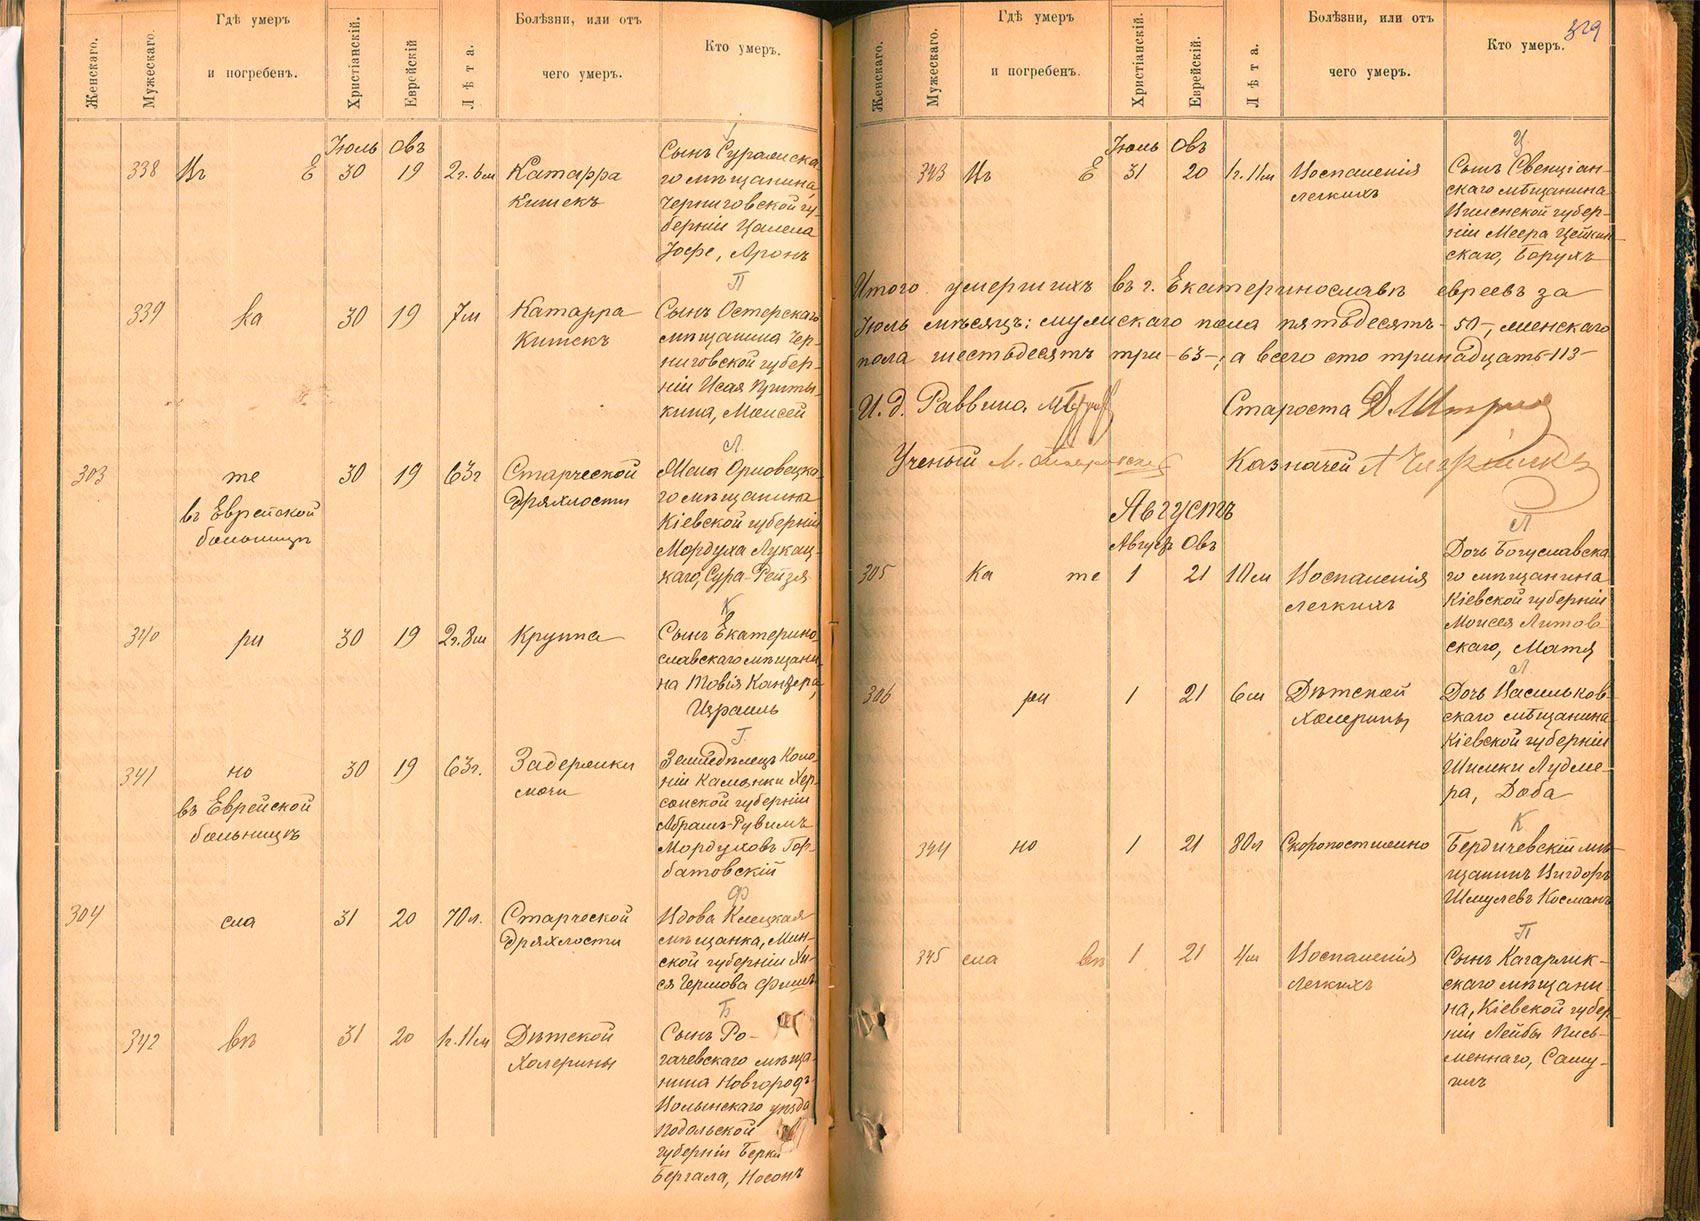 Женскаго.
Мужескаго.
Гдѣ умеръ
и погребенъ.
Христіанскій.
Еврейскій
Лѣта.
Болѣзни, или отъ
чего умеръ.
Кто умеръ.
Іюль Овъ
338 Въ Е 30 19 2г. 6м Катарра
Кишекъ
Сынъ Суражска
го мѣщанина
Черниговской гу-
берніи
Іофе, Аронъ
П
339 ка 30 19 7м Катарра
Кишекъ
Сынъ Остерскаго
мѣщанина Чер-
ниговской губер-
ніи Исая Приты-
кина, Моисей
Л
303 те 30 19 63г Старческой
дряхлости
въ Еврейской
больницѣ
Жена Орловецка-
го мѣщанина
Кіевской губерніи
Мордуха Лукац-
каго, Сура-Рейзя
К
340 ри 30 19 2г. 8м Круппа
Сынъ Екатерино-
славскаго мѣщани-
на Товія Канцера,
Израиль
Г
341 но 30 19 63г. Задержки
мочи
въ Еврейской
больницѣ
Земледѣлецъ Коло-
ніи Каменки Хер-
сонской губерніи
Абрамъ-Рувимъ
Мордуховъ Гор-
батовскій
Ф
304 сла 31 20 70л. Старческой
дряхлости
Вдова Клецкая
мѣщанка, Мин-
ской губерніи Ха-
ся Гершова
Б
342 вѣ 31 20 1г. 11м Дѣтской
Холерины
Сынъ Ро-
гачевскаго мѣща-
нина Новгородъ
Волынскаго уѣзда
Подольской
губерніи Берки
Бергала, Носонъ
Женскаго.
Мужескаго.
Гдѣ умеръ
и погребенъ.
Христіанскій.
Еврейскій.
Лѣта.
Болѣзни, или отъ
чего умеръ.
Кто умеръ.
329
Іюль Овъ
Ц
343 Въ Е 31 20 1г. 11м Воспаленія
легкихъ
Сынъ Свенціан-
скаго мѣщанина
Виленской губер-
ніи Меера Цейкин-
скаго, Борухъ
Итого умершихъ въ г. Екатеринославѣ евреевъ за
Іюль мѣсяцъ: мужскаго пола пятьдесятъ - 50 -, женскаго
пола шестьдесятъ три - 63 -, а всего сто тринадцать - 113 -
И. д. Раввина
Староста
Ученый
Казначей
Августъ
Август Овъ
Л
305 Ка те 1 21 10м Воспаленія
легкихъ
Дочь Богуславска-
го мѣщанина
Кіевской губерніи
Моисея Литов-
скаго, Матя
Л
306 ри 1 21 6м Дѣтской
холерины
Дочь Васильков-
скаго мѣщанина
Кіевской губерніи
Шимки Лудме-
ра, Доба
К
344 но 1 21 80л Скоропостижно
Бердичевскій мѣ-
щанинъ Вигдоръ
Шмулевъ Косманъ
П
345 сла вѣ 1 21 4м Воспаленія
Легкихъ
Сынъ Кагарлик-
скаго мѣщани-
на, Кіевской губер-
ніи Лейбы Пись-
меннаго, Саму-
илъ